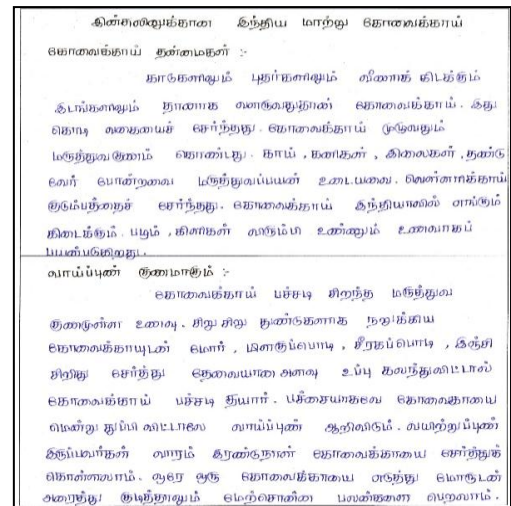 இன்சுலினுக்கான இந்திய மாற்று கோவைக்காய்
கோவைக்காய் தன்மைகள் :-
காடுகளிலும் புதர்களிலும் வீணாகக் கிடக்கும்
இடங்களிலும் தானாக வளருவதுதான் கோவைக்காய். இது
கொடி வகையைச் சேர்ந்தது. கோவைக்காய் முழுவதும்
மருத்துவகுணம் கொண்டது. காய், கனிகள், இலைகள், தண்டு
வேர் போன்றவை மருத்துவப்பயன் உடையவை. வெள்ளரிக்காய்
குடும்பத்தைச் சேர்ந்தது. கோவைக்காய் இந்தியாவில் எங்கும்
கிடைக்கும். பழம், கிளிகள் விரும்பி உண்ணும் உணவாகப்
பயன்படுகிறது.
வாய்ப்புண் குணமாகும் :-
கோவைக்காய் பச்சடி சிறந்த மருத்துவ
குணமுள்ள உணவு. சிறு சிறு துண்டுகளாக நறுக்கிய
கோவைக்காயுடன் மோர், மிளகுப்பொடி, சீரகப்பொடி, இஞ்சி
சிறிது சேர்த்து தேவையான அளவு உப்பு கலந்துவிட்டால்
கோவைக்காய் பச்சடி தயார். பச்சையாகவே கோவைகாயை
மென்று துப்பி விட்டாலே வாய்ப்புண் ஆறிவிடும். வயிற்றுப்புண்
இருப்பவர்கள் வாரம் இரண்டுநாள் கோவைக்காயை சேர்த்துக்
கொள்ளலாம். ஒரே ஒரு கோவைக்காயை எடுத்து மோருடன்
அரைத்து குடித்தாலும் மேற்சொன்ன பலன்களை பெறலாம்.